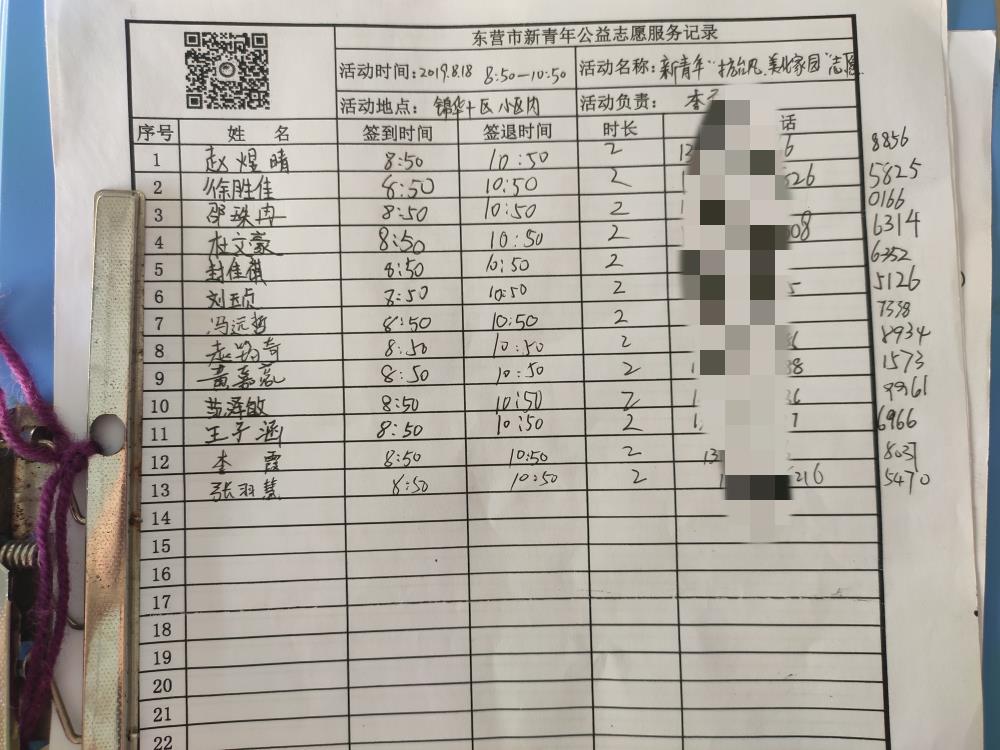 东营市新青年公益志愿服务记录
活动时间：2019.8.18 8:50—10:50 活动名称：新青年“抗台风、美化家园”志愿
活动地点：锦华十区小区内 活动负责：李
序号 姓 名 签到时间 签退时间 时长 话
1 赵煜晴 8:50 10:50 2 13 6 8856
2 徐胜佳 8:50 10:50 2 526 5825
3 邵珠冉 8:50 10:50 2 0166
4 杜文豪 8:50 10:50 2 08 6314
5 封佳祺 8:50 10:50 2 6352
6 刘玉贞 8:50 10:50 2 5 5126
7 冯远哲 8:50 10:50 2 7338
8 赵翔奇 8:50 10:50 2 8934
9 黄嘉 8:50 10:50 2 38 1573
10 泽敏 8:50 10:50 2 36 9961
11 王子涵 8:50 10:50 2 7 6966
12 李霞 8:50 10:50 2 13 8037
13 张羽慧 8:50 10:50 2 1 216 5470
14
15
16
17
18
19
20
21
22